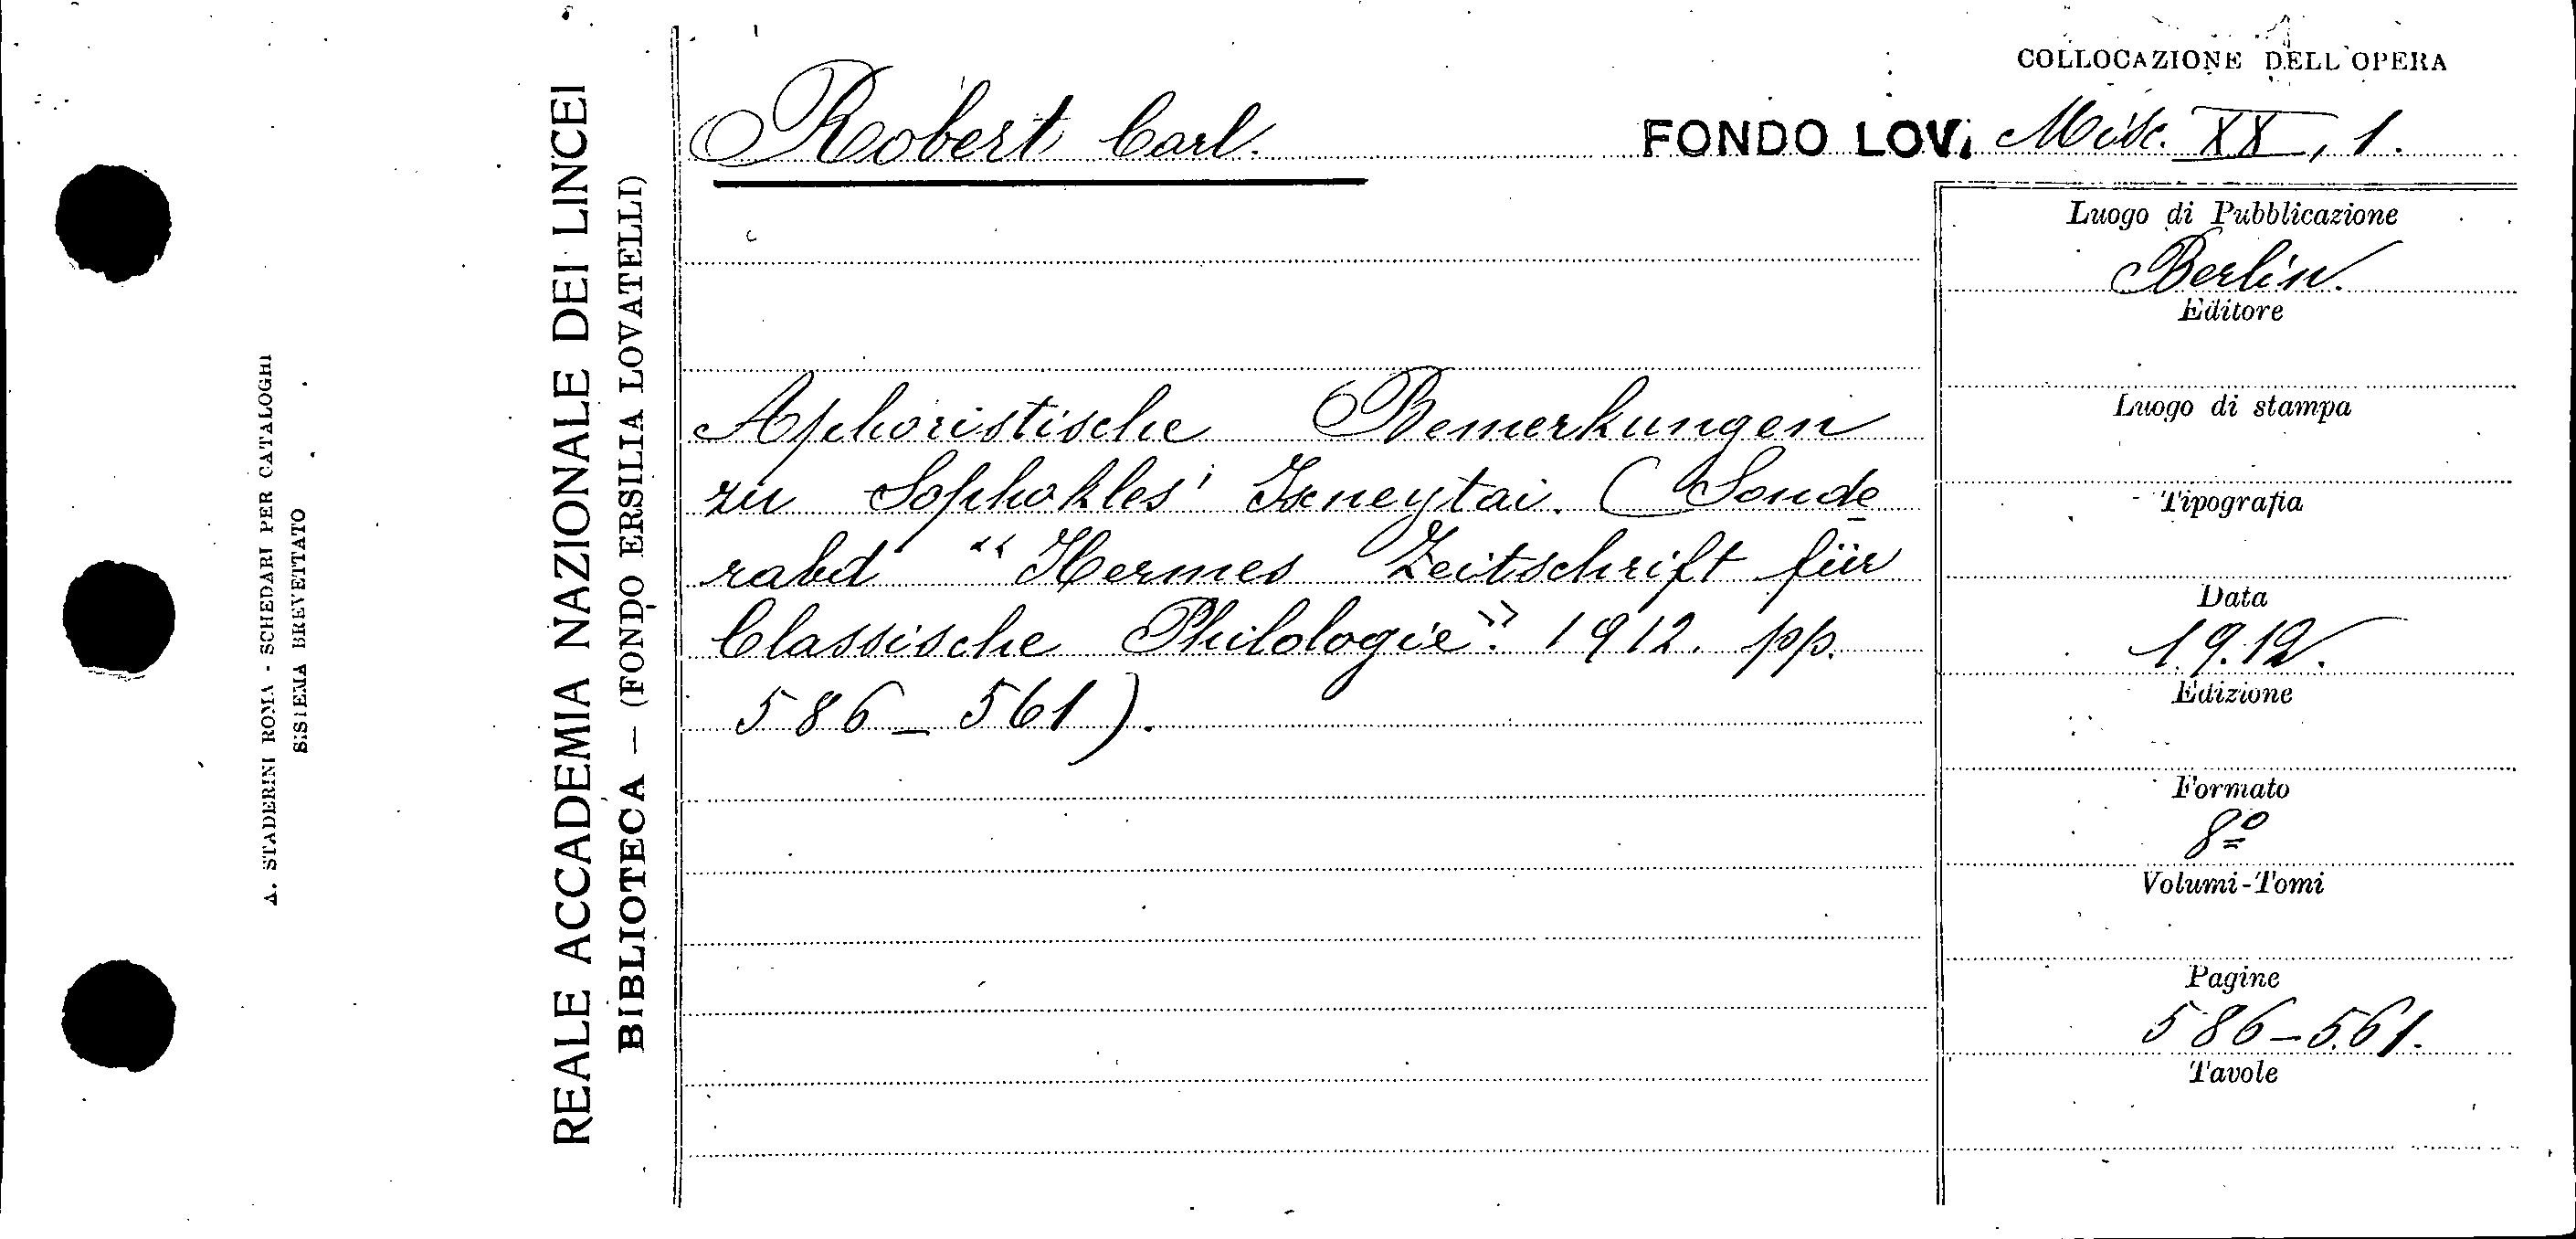 COLLOCAZIONE DELL'OPERA
Robert Carl.
FONDO LOV. Misc. XX, 1.
Luogo di Pubblicazione
Berlin.
Editore
Luogo di stampa
Tipografia
Data
1912.
Edizione
Formato
8º
Volumi-Tomi
Pagine
586-561.
Tavole
Aphoristische Bemerkungen
zu Sophokles' Ixneytai. (Sonde
rabd "Hermes Zeitschrift für
Classische Philologie". 1912. pp.
586-561).
REALE ACCADEMIA NAZIONALE DEI LINCEI
BIBLIOTECA — (FONDO ERSILIA LOVATELLI)
A. STADERINI ROMA - SCHEDARI PER CATALOGHI
SISTEMA BREVETTATO